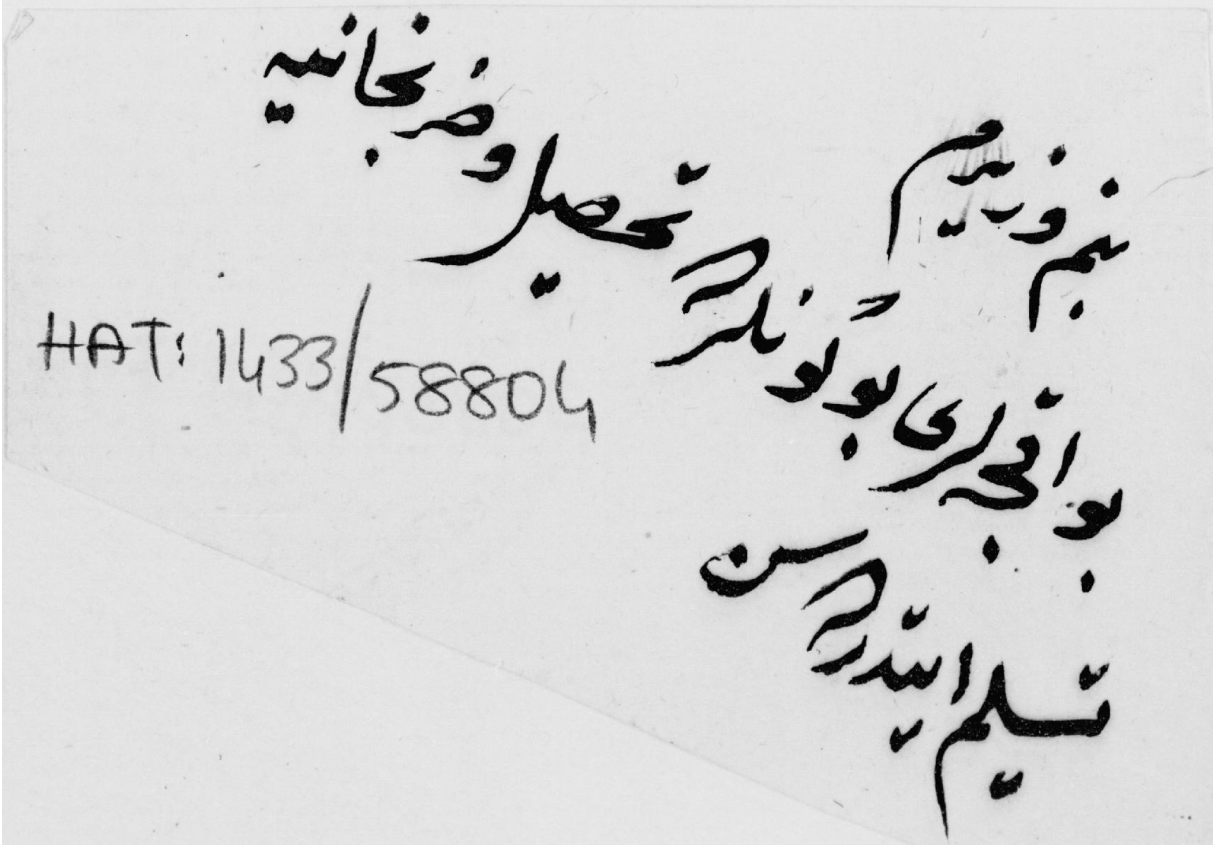 بنم وزيرم
بو اقچه لرى بو كونلرده تحصيل و ضربخانيه
تسليم ايتدره سن
HAT: 1433/58804